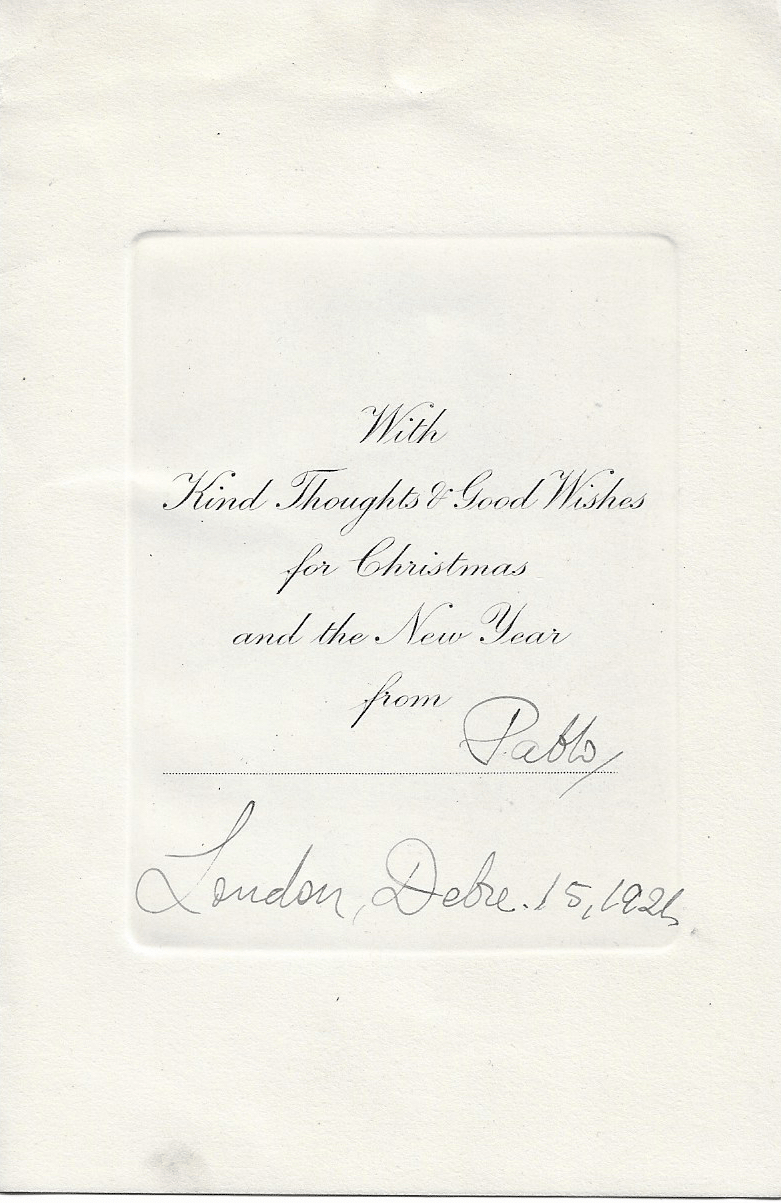 With
Kind Thoughts & Good Wishes
for Christmas
and the New Year
from
Pablo
London, Debre. 15, 1926